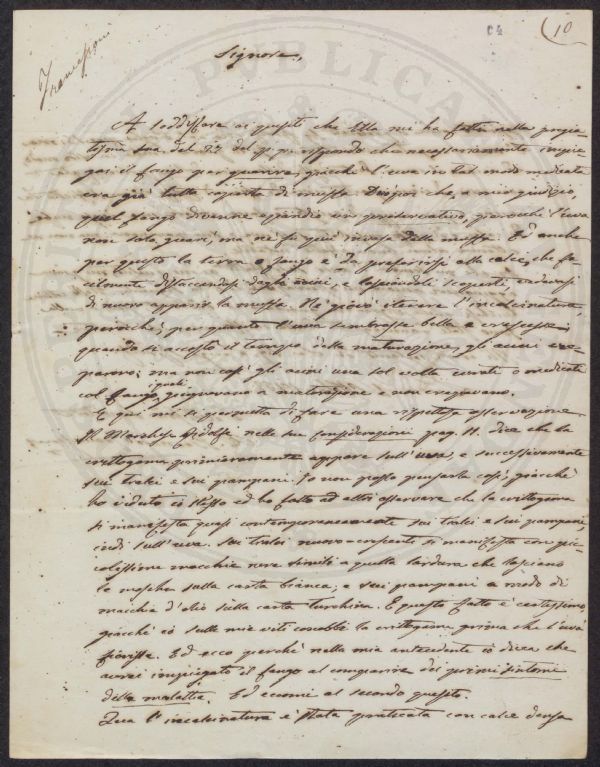 C4
10
Francesconi
Signore,
A soddisfare ai quesiti che Ella mi ha fatto nella pregia-
tissima sua del 27 del rispondo che necessariamente impie-
gai il fango per guarire, giacchè l'uva in tal modo medicata
era già tutta coperta di muffa. Dissi poi che, a mio giudizio,
quel fango divenne eziandio un preservativo, perocchè l'uva
non solo guarì, ma nè fu più invasa dalla muffa. Ed anche
per questo la terra o fango è da preferirsi alla calce, che fa-
cilmente distaccandosi dagli acini, e lasciandoli scoperti, vedevasi
di nuovo apparir la muffa. Nè giovò iterare l'incalcinatura,
perocchè, per quanto l'uva sembrasse bella e crescesse,
quando si accostò il tempo della maturazione, gli acini cre-
parono; ma non così gli acini una sol volta curati o medicati
col fango, i quali giunsero a maturazione e non crepavano.
E qui mi si permetta di fare una rispettosa osservazione.
Il Marchese Ridolfi nelle sue considerazioni pag. 11. dice che la
crittogama primieramente appare sull'uva, e successivamente
sui tralci e sui pampani. Io non posso pensarla così, giacchè
ho veduto io stesso ed ho fatto ad altri osservare che la crittogama
si manifesta quasi contemporaneamente sui tralci e sui pampani,
indi sull'uva. Sui tralci nuovo-crescenti si manifesta con pic-
colissime macchie nere simili a quella lordura che lasciano
le mosche sulla carta bianca, e sui pampani a modo di
macchia d'olio sulla carta turchina. E questo fatto è certissimo,
giacchè io sulle mie viti conobbi la crittogama prima che l'uva
fiorisse. Ed ecco perchè nella mia antecedente io dicea che
avrei impiegato il fango al comparire dei primi sintomi
della malattia. Ed eccomi al secondo quesito.
Qua l'incalcinatura è stata praticata con calce densa